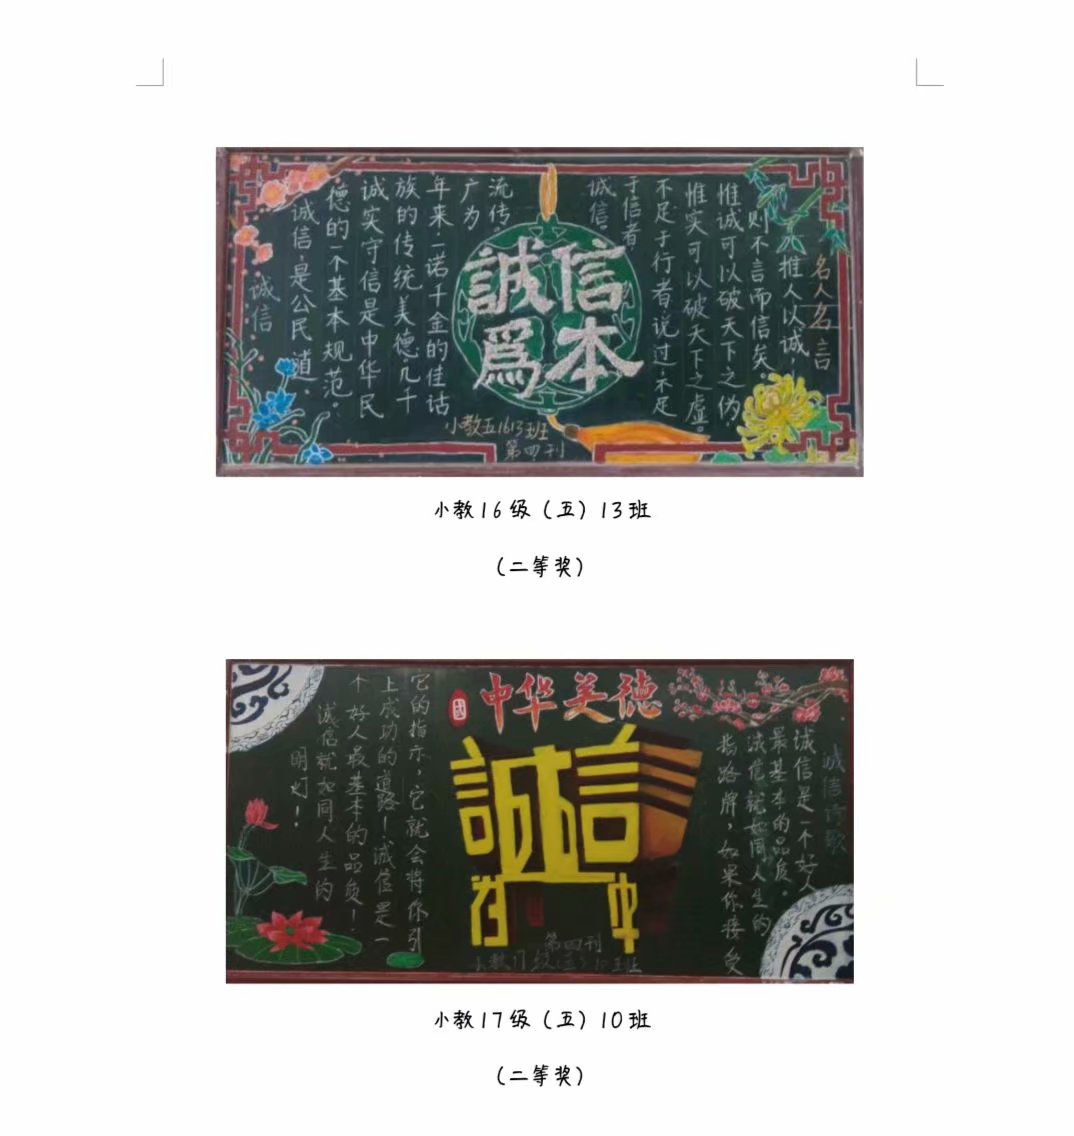 名人名言
推人以诚，
则不言而信矣。
惟诚可以破天下之伪，
惟实可以破天下之虚。
不足于行者说过，不足
于信者，
诚信。
誠信
爲本
诚信
诚信，是公民道
德的一个基本规范。
诚实守信是中华民
族的传统美德。几千
年来，一诺千金的佳话
广为
流传。
小教五1613班
第四刊
小教16级（五）13班
（二等奖）
中华美德
誠信
诚信诗歌
诚信是一个好人
最基本的品质。
诚信就如同人生的
指路牌，如果你接受
它的指示，它就会将你引
上成功的道路！诚信是一
个好人最基本的品质！
诚信就如同人生的
明灯！
第四刊
小教17级(五)10班
小教17级（五）10班
（二等奖）